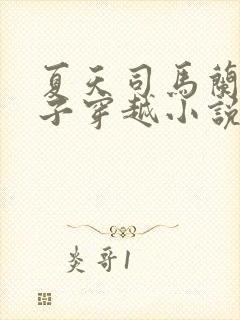 夏天司馬蘭
子穿越小說
炎哥1